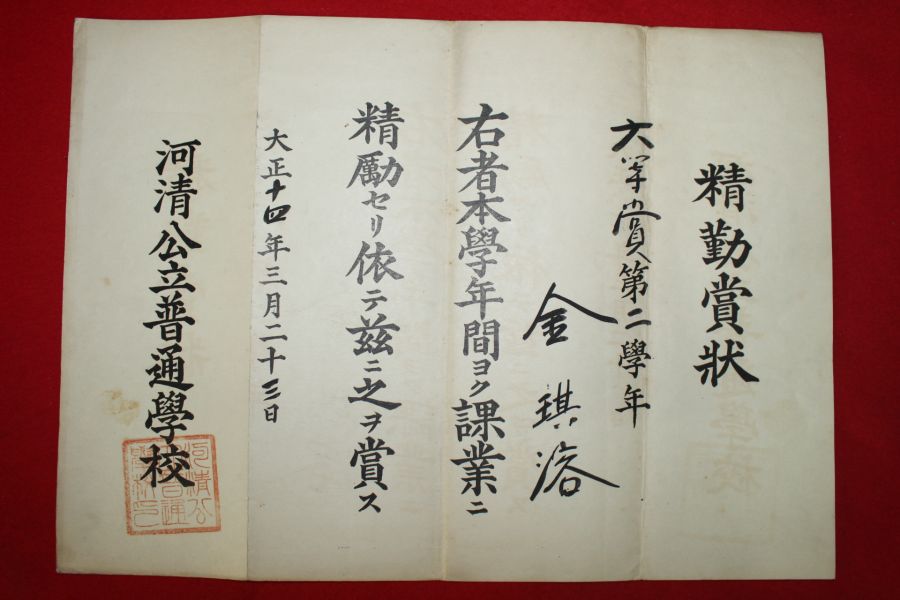 精勤賞狀
賞第二學年
金琪洛
右者本學年間ヨク課業ニ
精勵セリ依テ茲ニ之ヲ賞ス
大正十四年三月二十三日
河清公立普通學校
河清公
立普通
學校印